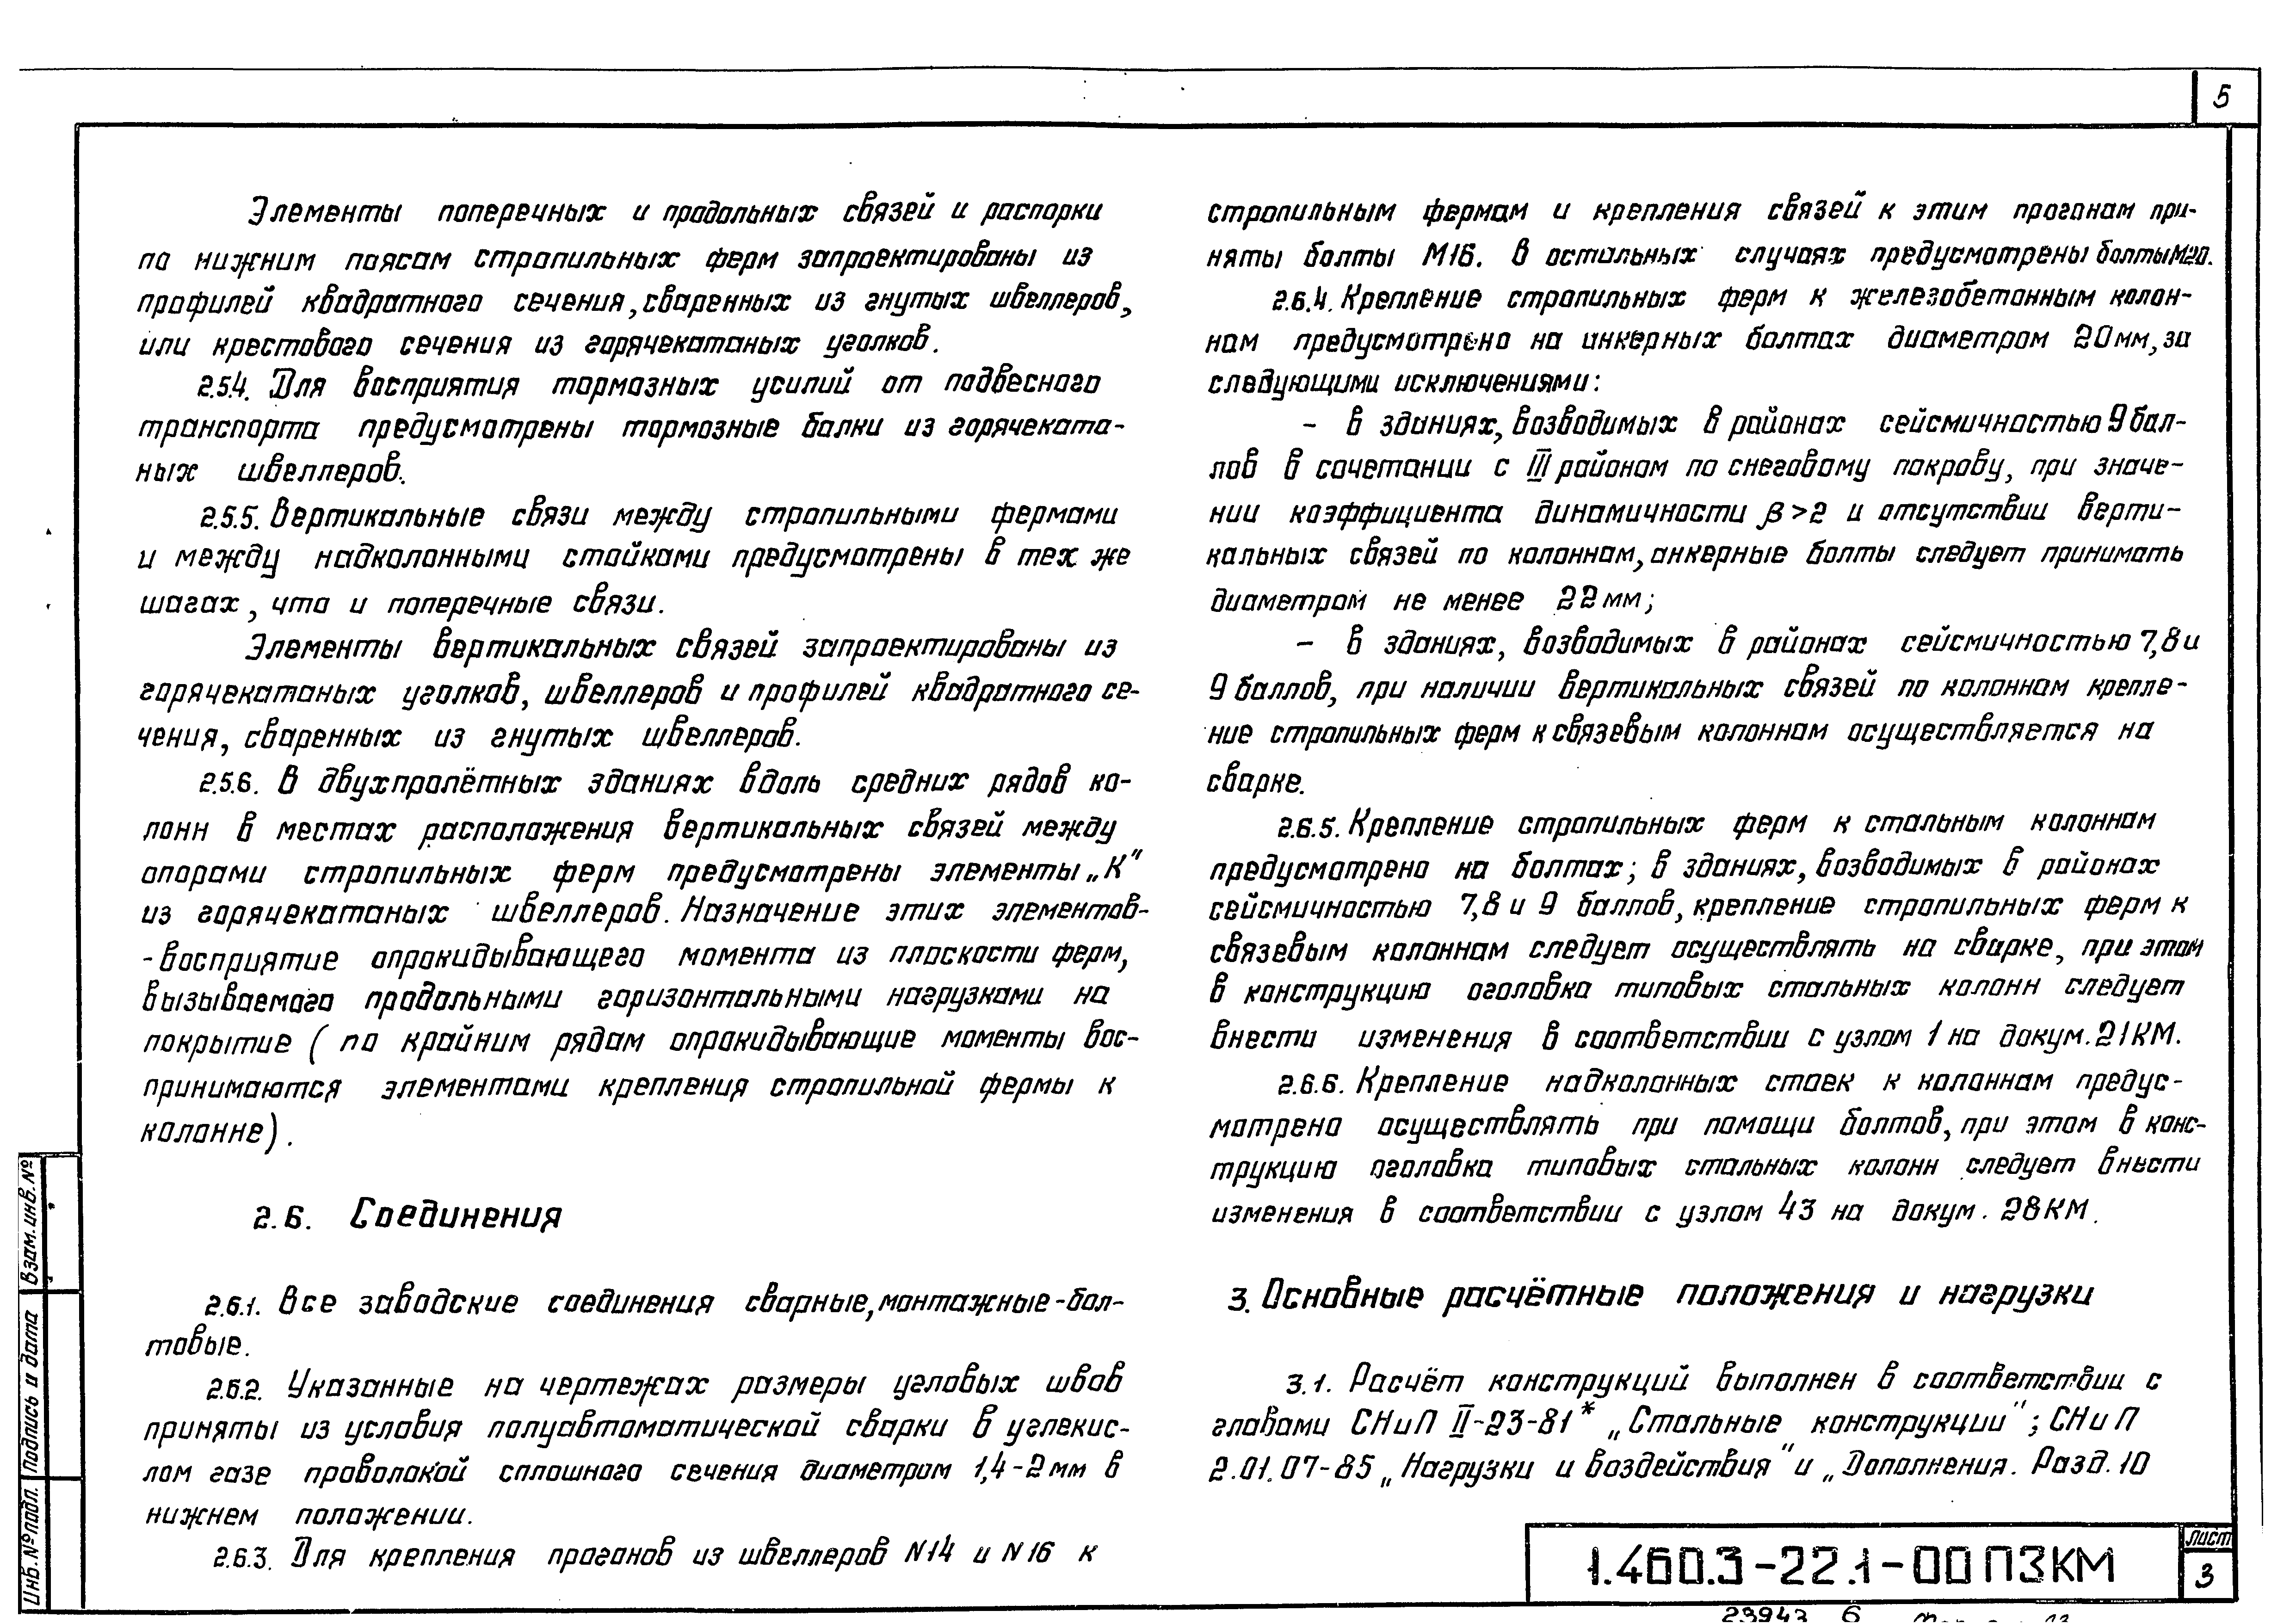 5
Элементы поперечных и продольных связей и распорки
по нижним поясам стропильных ферм запроектированы из
профилей квадратного сечения, сваренных из гнутых швеллеров,
или крестового сечения из горячекатаных уголков.
2.5.4. Для восприятия тормозных усилий от подвесного
транспорта предусмотрены тормозные балки из горячеката-
ных швеллеров.
2.5.5. Вертикальные связи между стропильными фермами
и между надколонными стойками предусмотрены в тех же
шагах, что и поперечные связи.
Элементы вертикальных связей запроектированы из
горячекатаных уголков, швеллеров и профилей квадратного се-
чения, сваренных из гнутых швеллеров.
2.5.6. В двухпролётных зданиях вдоль средних рядов ко-
лонн в местах расположения вертикальных связей между
опорами стропильных ферм предусмотрены элементы „К"
из горячекатаных швеллеров. Назначение этих элементов-
-восприятие опрокидывающего момента из плоскости ферм,
вызываемого продольными горизонтальными нагрузками на
покрытие (по крайним рядам опрокидывающие моменты вос-
принимаются элементами крепления стропильной фермы к
колонне).
2.6. Соединения
2.6.1. Все заводские соединения сварные, монтажные-бол-
товые.
2.6.2. Указанные на чертежах размеры угловых швов
приняты из условия полуавтоматической сварки в углекис-
лом газе проволокой сплошного сечения диаметром 1,4-2мм в
нижнем положении.
2.6.3. Для крепления прогонов из швеллеров N14 и N16 к
стропильным фермам и крепления связей к этим прогонам при-
няты болты М16. В остальных случаях предусмотрены болты М20.
2.6.4. Крепление стропильных ферм к железобетонным колон-
нам предусмотрено на анкерных болтах диаметром 20мм, за
следующими исключениями:
- в зданиях, возводимых в районах сейсмичностью 9 бал-
лов в сочетании с III районом по снеговому покрову, при значе-
нии коэффициента динамичности β>2 и отсутствии верти-
кальных связей по колоннам, анкерные болты следует принимать
диаметром не менее 22мм;
- в зданиях, возводимых в районах сейсмичностью 7,8 и
9 баллов, при наличии вертикальных связей по колоннам крепле-
ние стропильных ферм к связевым колоннам осуществляется на
сварке.
2.6.5. Крепление стропильных ферм к стальным колоннам
предусмотрено на болтах; в зданиях, возводимых в районах
сейсмичностью 7,8 и 9 баллов, крепление стропильных ферм к
связевым колоннам следует осуществлять на сварке, при этом
в конструкцию оголовка типовых стальных колонн следует
внести изменения в соответствии с узлом 1 на докум. 21КМ.
2.6.6. Крепление надколонных стоек к колоннам предус-
мотрено осуществлять при помощи болтов, при этом в конс-
трукцию оголовка типовых стальных колонн следует внести
изменения в соответствии с узлом 43 на докум. 28КМ.
3. Основные расчётные положения и нагрузки
3.1. Расчёт конструкций выполнен в соответствии с
главами СНиП II-23-81* „Стальные конструкции"; СНиП
2.01.07-85 „Нагрузки и воздействия" и „Дополнения. Разд. 10
Взам. инв. №
Подпись и дата
Инв. № подл.
1.460.3-22.1-00ПЗКМ
Лист
3
23943 6